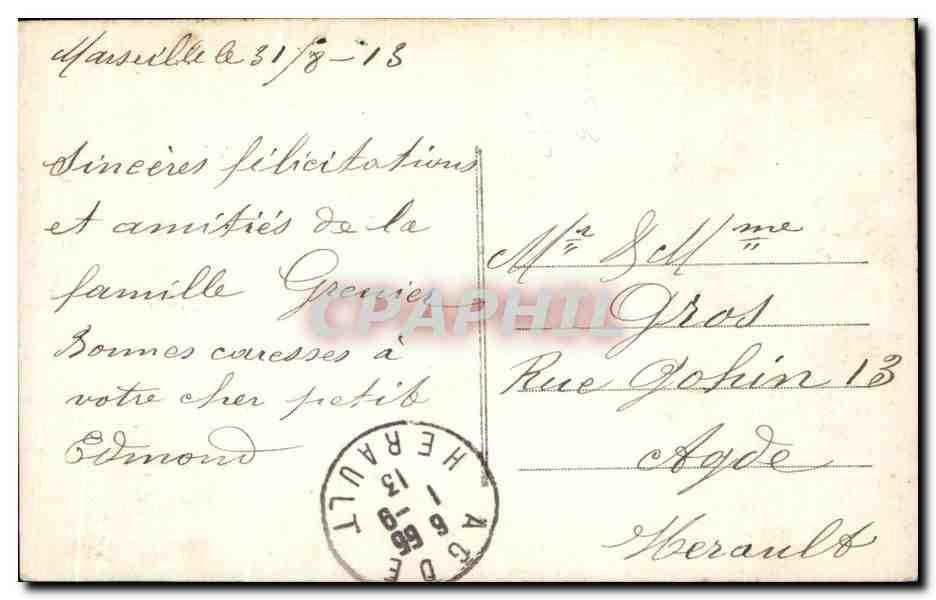 Marseille le 31/8-13
Sincères félicitations
et amitiés de la
famille Grenier
Bonnes caresses à
votre cher petit
Edmond
Mr & Mme
Gros
Rue Gohin 13
Agde
Herault
CPAPHIL
AGDE
HERAULT
13